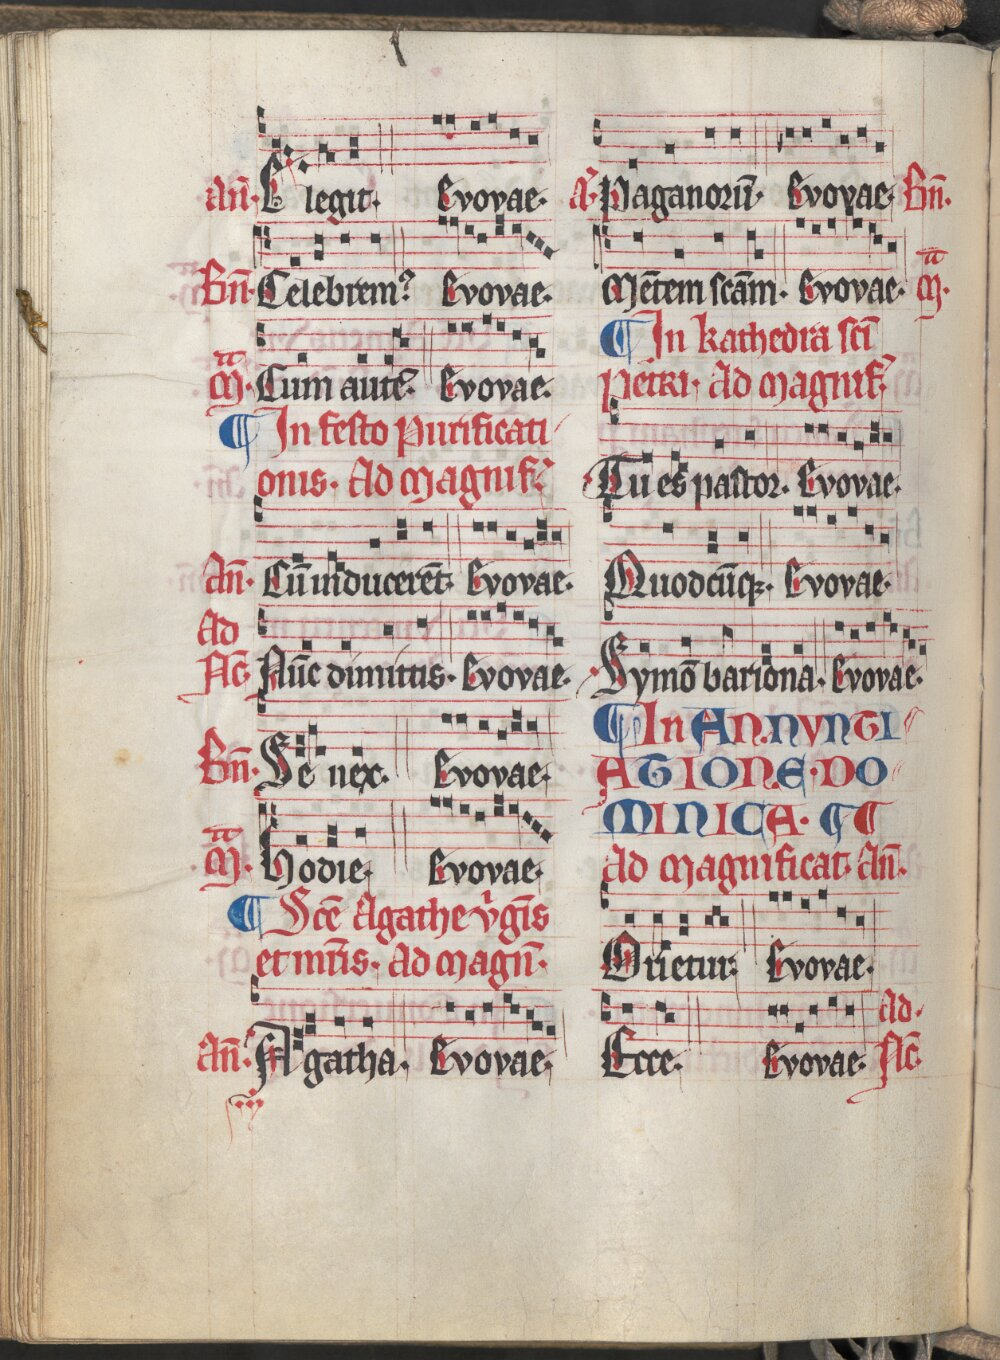 Añ. Elegit. Evovae.
Bñ. Celebrem? Evovae.
M̄. Cum aute᷒. Evovae.
¶ In festo Purificati
onis. Ad Magnif᷒.
Añ. Cū inducerēt. Evovae.
Ad
Nc̄. Nūc dimittis. Evovae.
Bñ. Senex. Evovae.
M̄. Hodie. Evovae.
¶ Scē Agathe v̾gīs
et mr̄is. Ad Magn̄.
Añ. Agatha. Evovae.
A᷒. Paganorū. Evovae. Bñ.
Mētem scām. Evovae. M̄.
¶ In kathedra scī
Petri. Ad Magnif᷒.
Tu es pastor. Evovae.
Quodcūqꝫ. Evovae.
Symō bariona. Evovae.
¶ In Annunti
atione Do
minica. ¶ ¶
Ad Magnificat. Añ.
Orietur. Evovae.
Ecce. Evovae. Ad.
Nc̄.